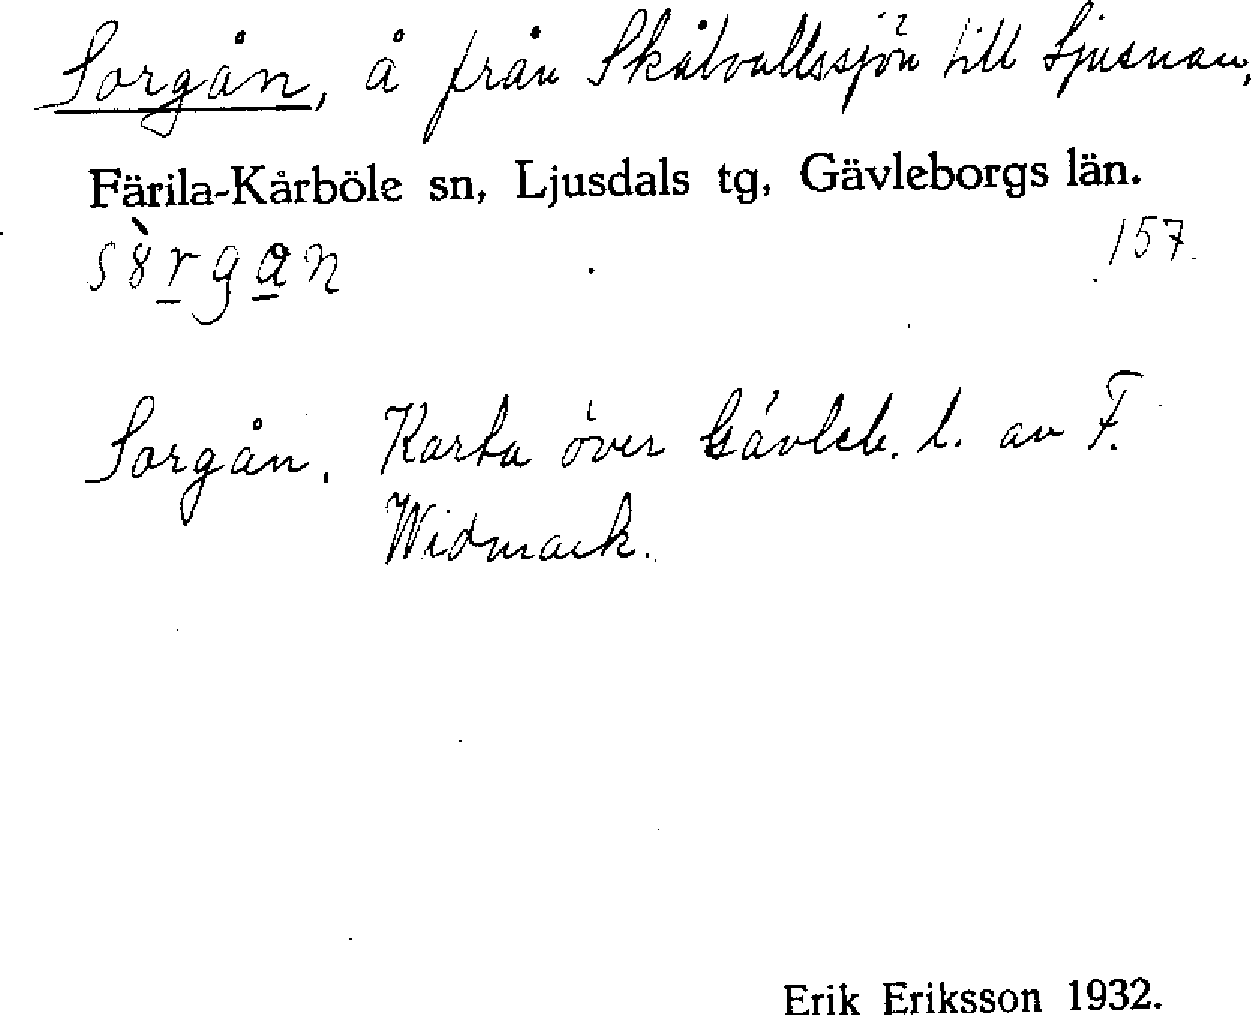 Sorgån, å från Skålvallssjön till Ljusnan,
Färila-Kårböle sn, Ljusdals tg, Gävleborgs län.
157.
Sorgån. Karta över Gävleb. l. av F.
Widmark.
Erik Eriksson 1932.